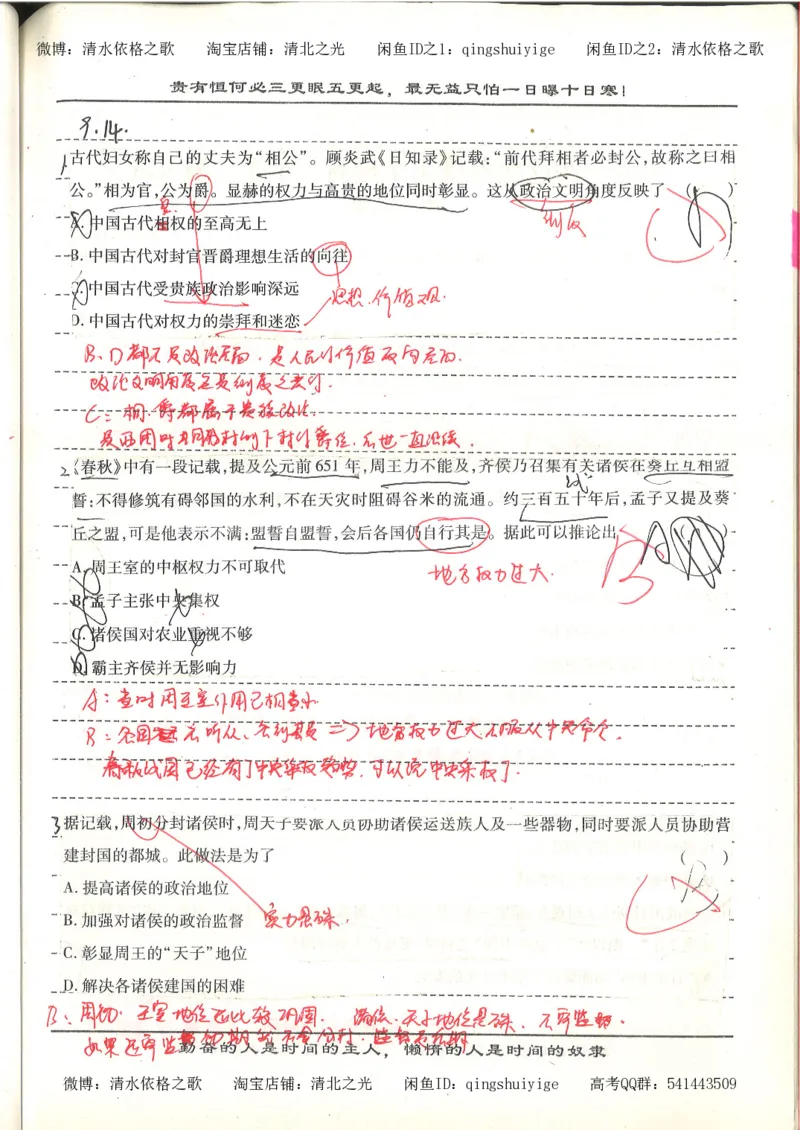 微博：清水依格之歌 淘宝店铺：清北之光 闲鱼ID之1：qingshuiyige 闲鱼ID之2：清水依格之歌
贵有恒何必三更眠五更起，最无益只怕一日曝十日寒！
9.14.
1.古代妇女称自己的丈夫为“相公”。顾炎武《日知录》记载：“前代拜相者必封公，故称之曰相
公。”相为官，公为爵。显赫的权力与高贵的地位同时彰显。这从政治文明角度反映了（ ）
制度
A. 中国古代相权的至高无上
B. 中国古代对封官晋爵理想生活的向往
C. 中国古代受贵族政治影响深远
思想.价值观.
D. 中国古代对权力的崇拜和迷恋
B、D都不是政治层面.是人民的价值取向层面.
政治文明角度
C：相.爵都属于贵族政治.
2.《春秋》中有一段记载，提及公元前651年，周王力不能及，齐侯乃召集有关诸侯在葵丘互相盟
誓：不得修筑有碍邻国的水利，不在天灾时阻碍谷米的流通。约三百五十年后，孟子又提及葵
丘之盟，可是他表示不满：盟誓自盟誓，会后各国仍自行其是。据此可以推论出
A B
A. 周王室的中枢权力不可取代
地方权力过大.
B. 孟子主张中央集权
C. 诸侯国对农业重视不够
D. 霸主齐侯并无影响力
A：当时周王室作用已相当小
B：各国不听从、各行其是 => 地方权力过大不服从中央命令.
春秋战国已经有了中央集权趋势.可以说中央集权了.
3.据记载，周初分封诸侯时，周天子要派人员协助诸侯运送族人及一些器物，同时要派人员协助营
建封国的都城。此做法是为了 （ ）
A. 提高诸侯的政治地位
B. 加强对诸侯的政治监督 实力悬殊.
C. 彰显周王的“天子”地位
D. 解决各诸侯建国的困难
B、周初.王室地位还比较巩固. 诸侯、天子地位悬殊.不需监督.
如果还需监督
勤奋的人是时间的主人，懒惰的人是时间的奴隶
微博：清水依格之歌 淘宝店铺：清北之光 闲鱼ID：qingshuiyige 高考QQ群：541443509